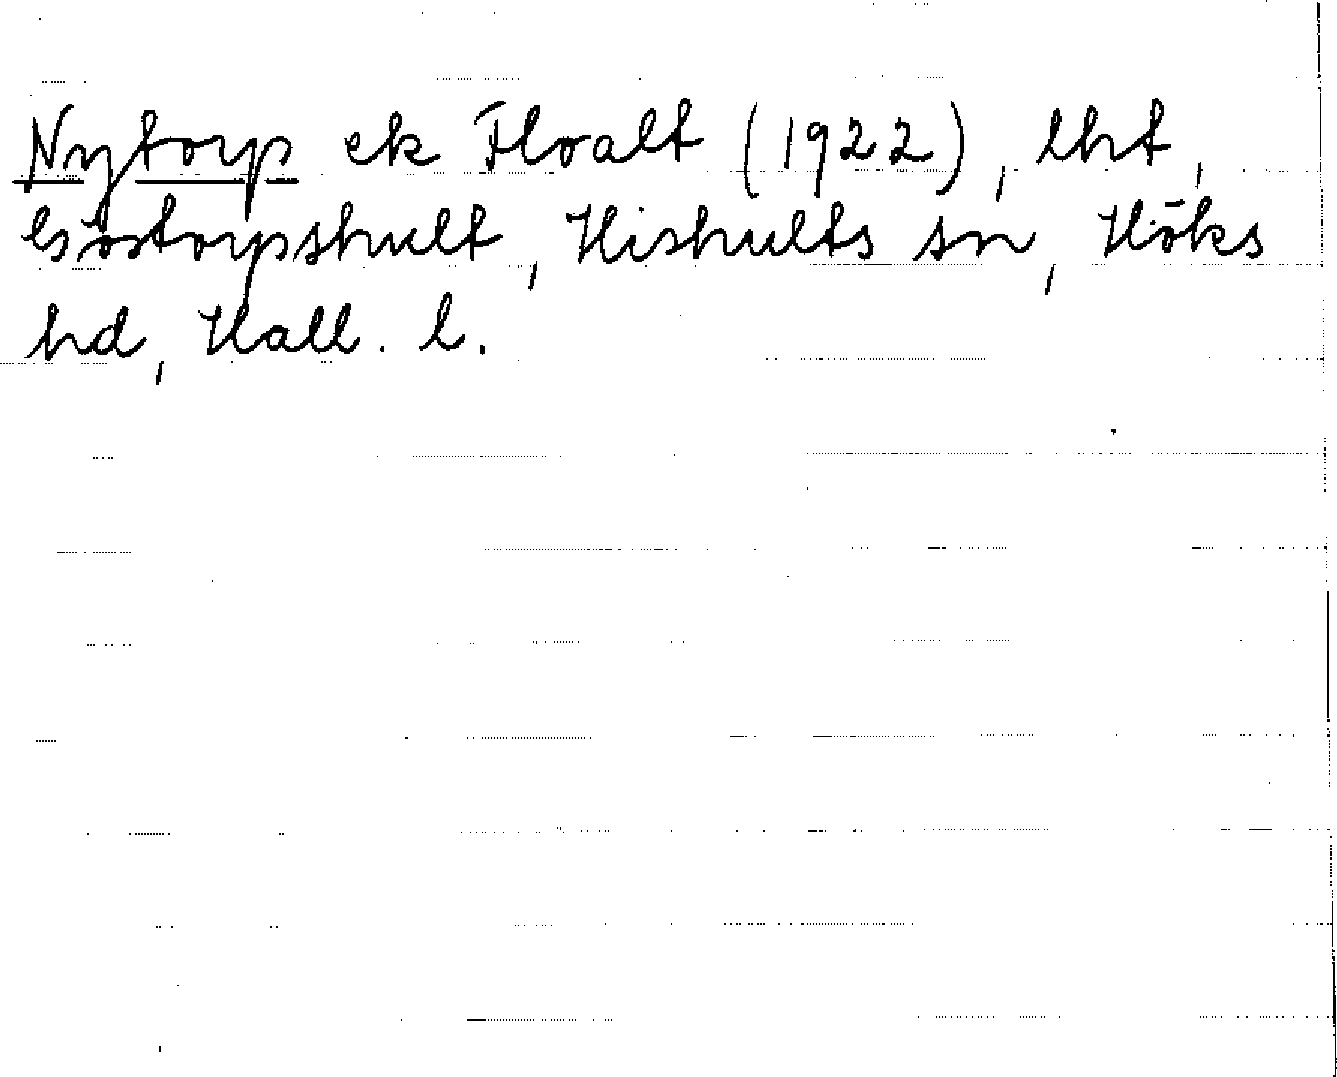 Nytorp ek Floalt (1922), lht,
Göstorpshult, Hishults sn, Höks
hd, Hall. l.